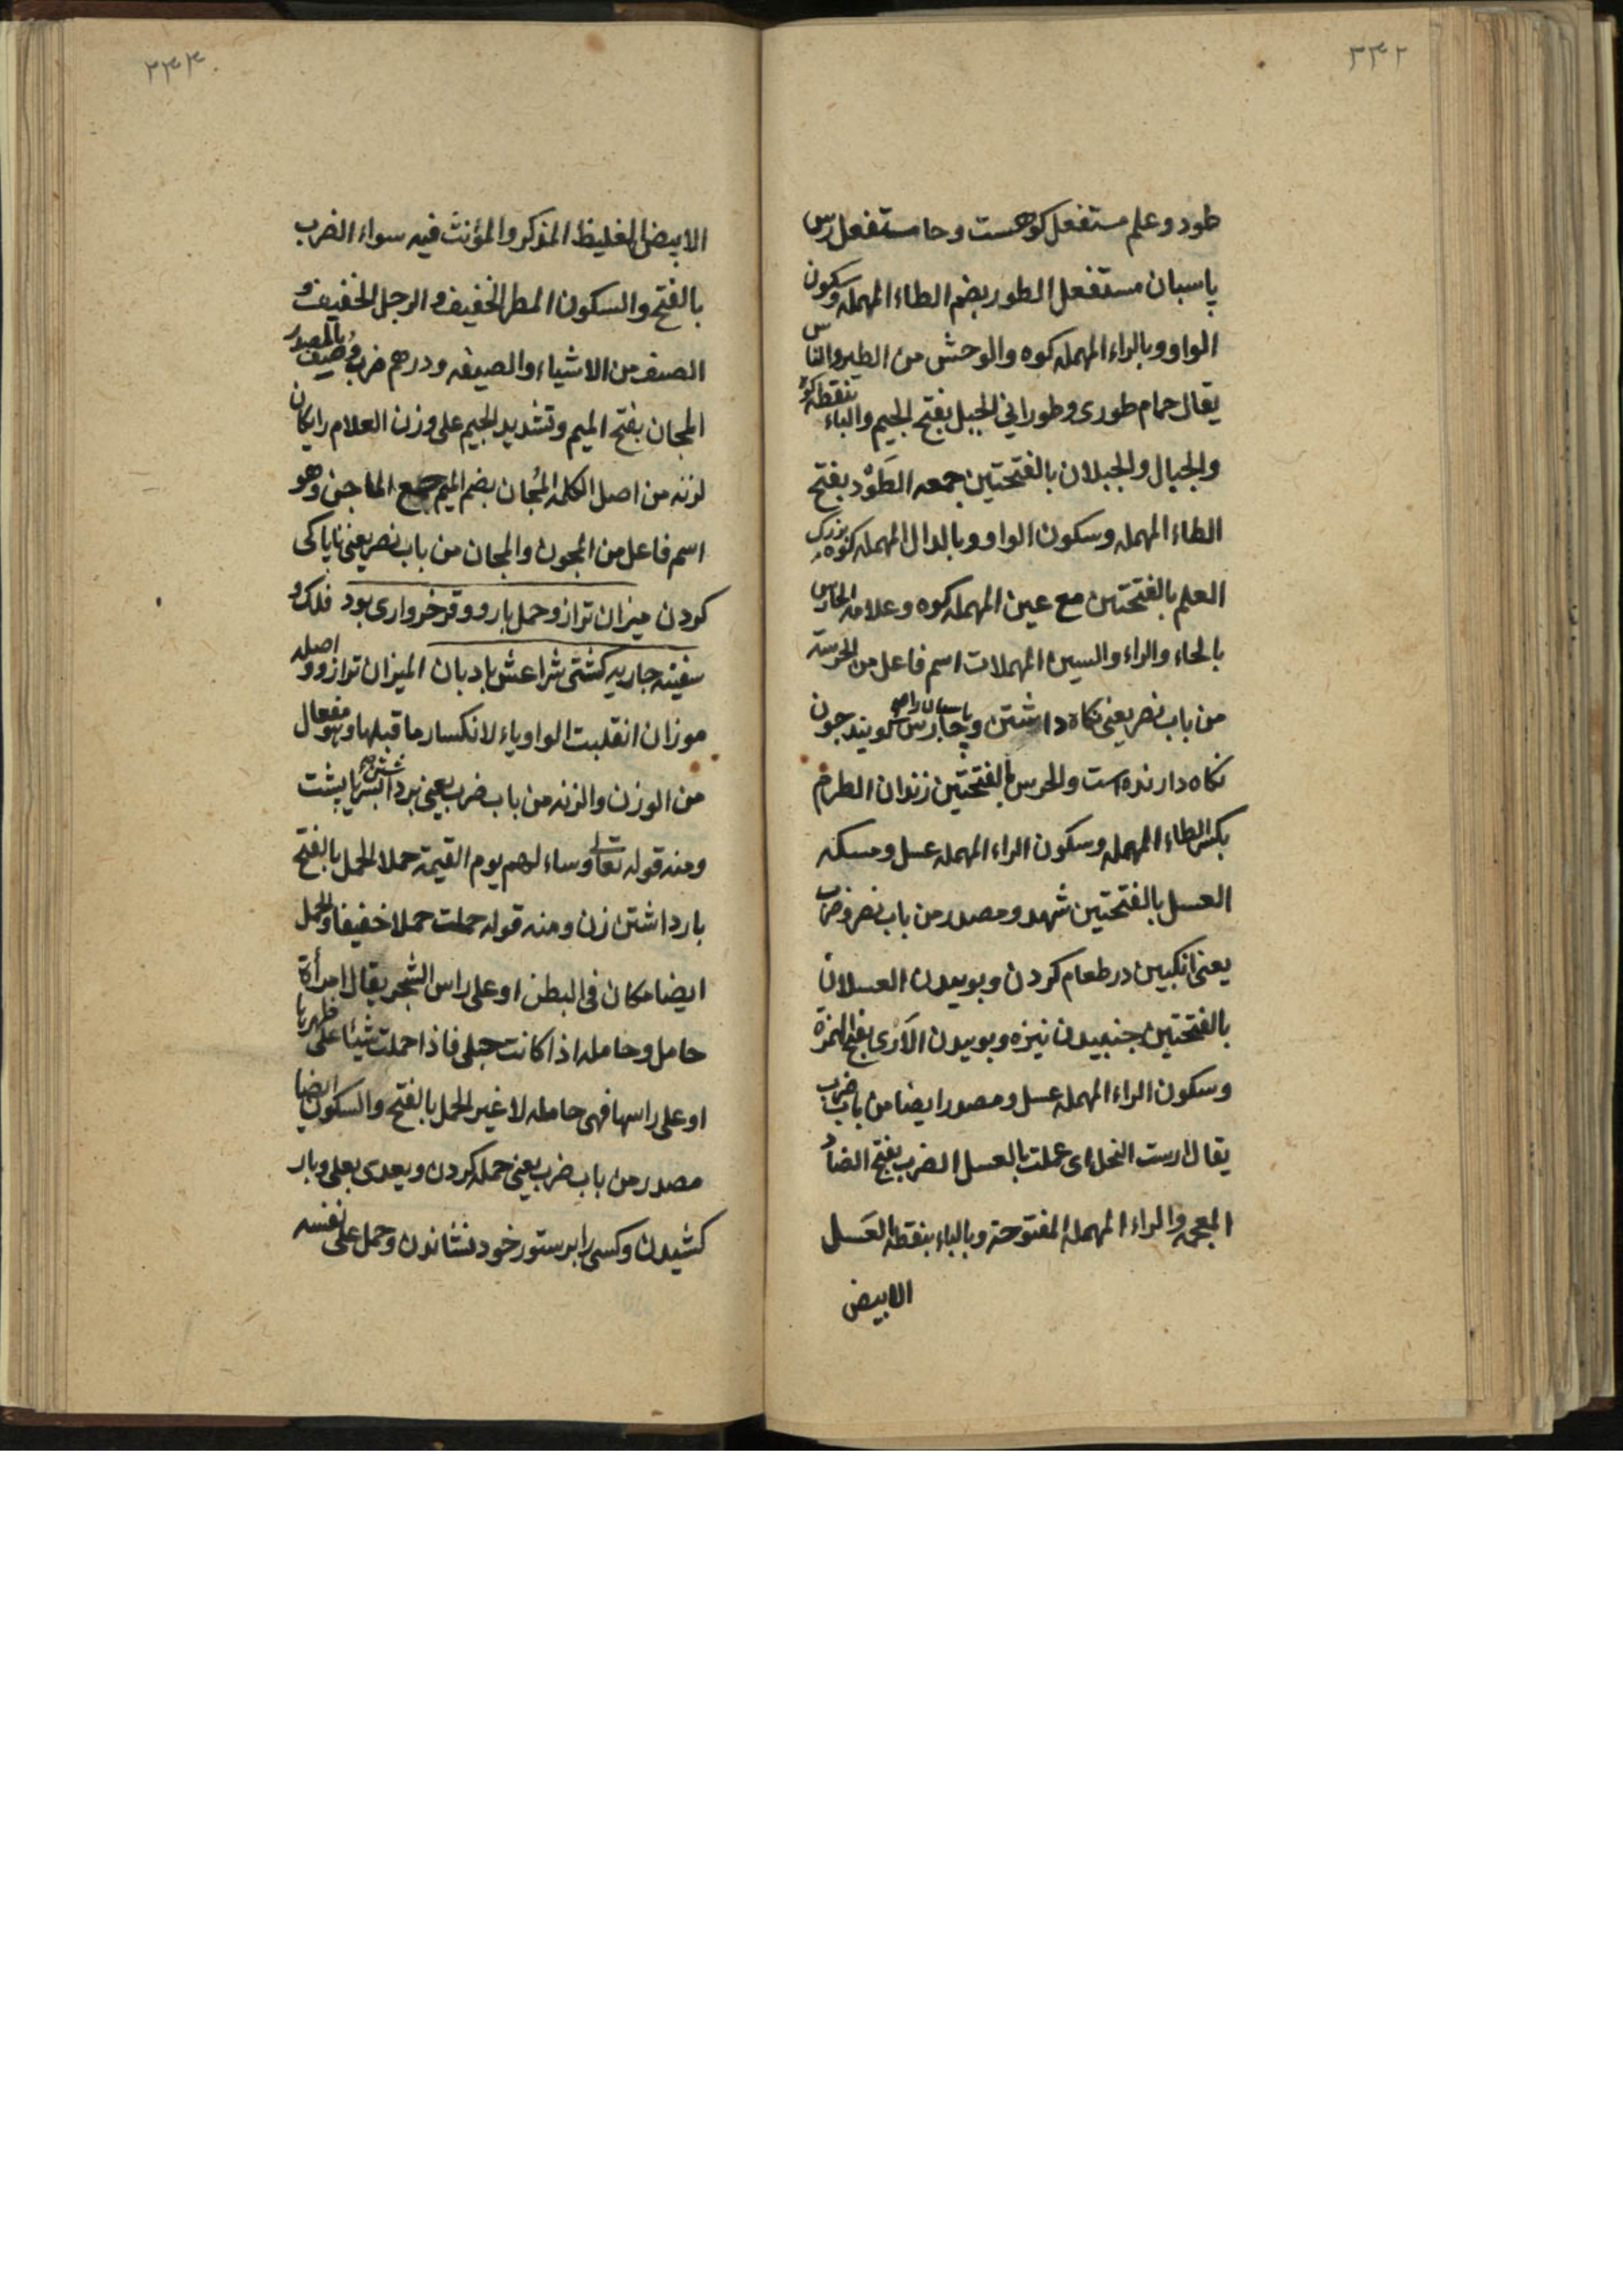 ٢٣٢
طود و علم مستفعل کوهست و حا مستفعل رس
پاسبان مستفعل الطور بضم الطاء المهمله و سکون
الواو و بالراء المهمله کوه و الوحش من الطیر و الناس
یقال حمام طوری و طورانی الجبل بفتح الجیم و الباء بنقطه کوه
و الجبال و الجبلان بالفتحتین جمعه الطَوْد بفتح
الطاء المهمله و سکون الواو و بالدال المهمله کوه بزرک
العلم بالفتحتین مع عین المهمله کوه و علامه الحارس
بالحاء و الراء و السین المهملات اسم فاعل من الحرسة
من باب نصر یعنی نکاه داشتن و پاسبان را حارس کویند چون
نکاه دارنده است و الحرس بالفتحتین زنوان الطرم
بکسر الطاء المهمله و سکون الراء المهمله عسل و مسکه
العسل بالفتحتین شهد و مصدر من باب نصر و ضرب
یعنی انکبین در طعام کردن و بوییدن العسلان
بالفتحتین جنبیدن نیزه و بوییدن الاَرْی بفتح الهمزة
و سکون الراء المهمله عسل و مصدر ایضا من باب ضرب
یقال ارست النحل ای عملت بالعسل الضرب بفتح الضاد
المعجمه و الراء المهمله المفتوحة و بالباء بنقطه العَسل
الابیض
٢٣٣
الابیض الغلیظ المذکر و المؤنث فیه سواء الضرب
بالفتح و السکون المطر الخفیف و الرجل الخفیف و
الصنف من الاشیاء و الصیغه و درهم ضرب وُصِف بالمصدر
المجان بفتح المیم و تشدید الجیم علی وزن العلام رایکان
لزنه من اصل الکلمه المُجان بضم المیم جمع الماجن و هو
اسم فاعل من المجون و المجان من باب نصر یعنی ناپاکی
کردن میزان ترازو حمل بار و وقر خرواری بود فلک و
سفینه جاریه کشتی شراعش بادبان المیزان ترازو و اصله
موزان انقلبت الواو یاء لانکسار ما قبلها و هو مفعال
من الوزن و الزنه من باب ضرب یعنی برداشتن بسر یا پشت
و منه قوله تعالی و ساء لهم یوم القیمة حملا الحمل بالفتح
بار داشتن زن و منه قوله حملت حملا خفیفا و الحمل
ایضا مکان فی البطن او علی راس الشجر یقال امرأة
حامل و حامله اذا کانت حبلی فاذا حملت شیئا علی ظهرها
او علی راسها فهی حامله لا غیر الحمل بالفتح و السکون ایضا
مصدر من باب ضرب یعنی حمله کردن و یعدی بعلی و بار
کشیدن و کسی را بر ستور خود نشاندن و حمل علی نفسه